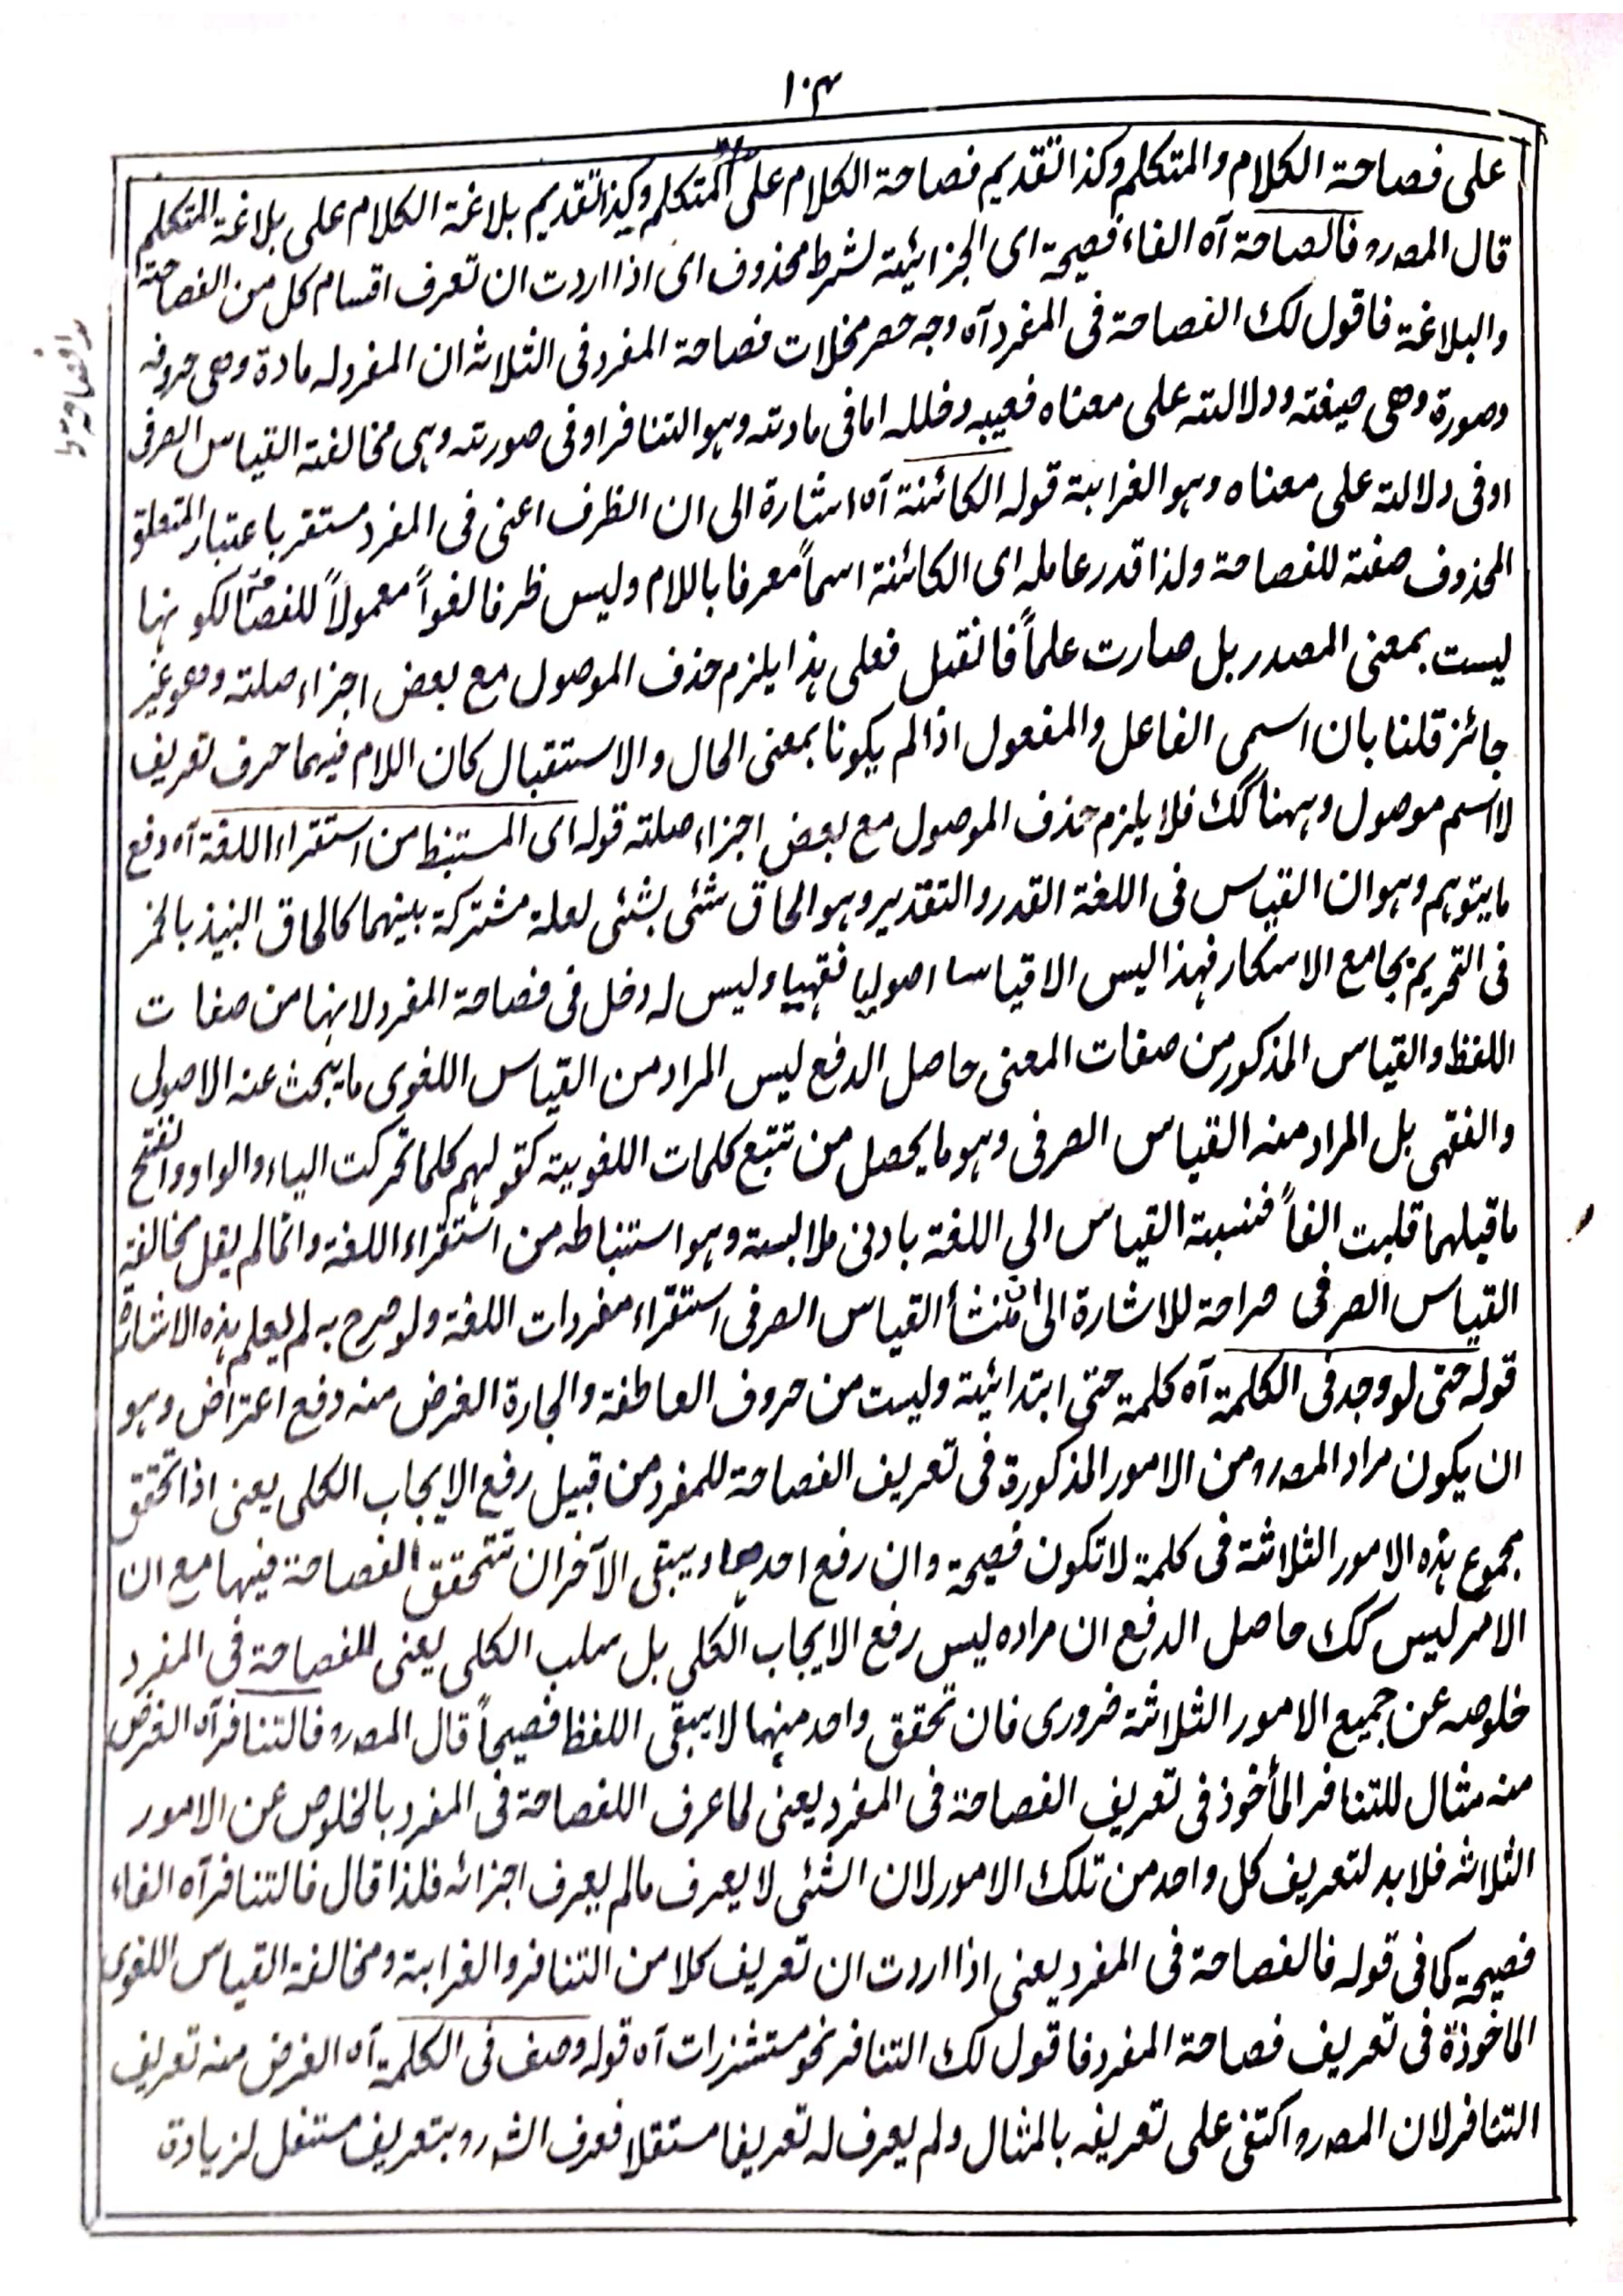 ١٠٣
على فصاحة الكلام والمتكلم وكذا تقديم فصاحة الكلام على المتكلم وكذا تقديم بلاغة الكلام على بلاغة المتكلم
قال المصرو فالصاحة آه الفاء فصيحة اى الجزائية لشرط محذوف اى اذا اردت ان تعرف اقسام كل من الفصاحة
والبلاغة فاقول لك الفصاحة فى المفرد آه وجه حصر مخلات فصاحة المفرد فى الثلاثه ان المفرد له مادة وهى حروفه
وصورة وهى صيغته ودلالته على معناه فعيبه وخلله اما فى مادته وهو التنافر او فى صورته وهى مخالفته القياس الصرفى
اوفى دلالته على معناه وهو الغرابية قوله الكائنة آه اشارة الى ان الظرف اعنى فى المفرد مستقر باعتبار المتعلق
المحذوف صفته للفصاحة ولذا قدر عامله اى الكائنة اسماً معرفا باللام وليس ظرفا لغواً معمولاً للفصاحة لكونها
ليست بمعنى المصدر بل صارت علماً فانقبل فعلى هذا يلزم حذف الموصول مع بعض اجزاء صلته وهو غير
جائز قلنا بان اسمى الفاعل والمفعول اذا لم يكونا بمعنى الحال والاستقبال كان اللام فيهما حرف تعريف
لا اسم موصول وههنا كك فلا يلزم حذف الموصول مع بعض اجزاء صلته قوله اى المستنبط من استقراء اللغة آه دفع
ما يتوهم وهو ان القياس فى اللغة القدر والتقدير وهو الحاق شئى بشئى لعلة مشتركة بينهما كالحاق النبيذ بالخمر
فى التحريم بجامع الاسكار فهذا ليس الا قياسا اصوليا فقهيا وليس له دخل فى فصاحة المفرد لانها من صفات
اللفظ والقياس المذكور من صفات المعنى حاصل الدفع ليس المراد من القياس اللغوى ما يبحث عنه الاصولى
والفقهى بل المراد منه القياس الصرفى وهو ما يحصل من تتبع كلمات اللغوية كقولهم كلما تحركت الياء والواو وانفتح
ما قبلهما قلبت الفاً فنسبة القياس الى اللغة بادنى ملابسة وهو استنباطه من استقراء اللغة وانما لم يقل مخالفة
القياس الصرفى صراحة للاشارة الى ان منشأ القياس الصرفى استقراء مفردات اللغة ولو صرح به لم يعلم هذه الاشارة
قوله حتى لو وجد فى الكلمة آه كلمة حتى ابتدائية وليست من حروف العاطفة والجارة الغرض منه دفع اعتراض وهو
ان يكون مراد المصرو من الامور المذكورة فى تعريف الفصاحة للمفرد من قبيل رفع الايجاب الكلى يعنى اذا تحقق
مجموع هذه الامور الثلاثة فى كلمة لا تكون فصيحة وان رفع احدها ويبقى الآخران تتحقق الفصاحة فيها مع ان
الامر ليس كك حاصل الدفع ان مراده ليس رفع الايجاب الكلى بل سلب الكلى يعنى للفصاحة فى المفرد
خلوصه عن جميع الامور الثلاثة ضرورى فان تحقق واحد منها لا يبقى اللفظ فصيحاً قال المصرو فالتنافر آه الغرض
منه مثال للتنافر المأخوذ فى تعريف الفصاحة فى المفرد يعنى لما عرف اللفصاحة فى المفرد بالخلوص عن الامور
الثلاثه فلا بد لتعريف كل واحد من تلك الامور لان الشئى لا يعرف مالم يعرف اجزائه فلذا قال فالتنافر آه الفاء
فصيحة كما فى قوله فالفصاحة فى المفرد يعنى اذا اردت ان تعريف كلا من التنافر والغرابة ومخالفة القياس اللغوى
الماخوذة فى تعريف فصاحة المفرد فاقول لك التنافر نحو مستشزرات آه قوله وصف فى الكلمة آه الغرض منه تعريف
التنافر لان المصرو اكتفى على تعريفه بالمثال ولم يعرف له تعريفا مستقلا فعرف الشرو بتعريف مستقل لزيادة